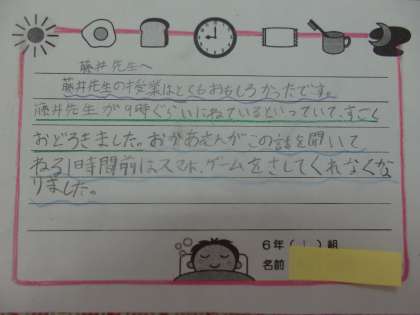 藤井先生へ
藤井先生の授業はとてもおもしろかったです。
藤井先生が9時ぐらいにねているといっていて、すごく
おどろきました。おかあさんがこの話を聞いて
ねる1時間前はスマホ、ゲームをさしてくれなくな
りました。
6年(1)組
名前